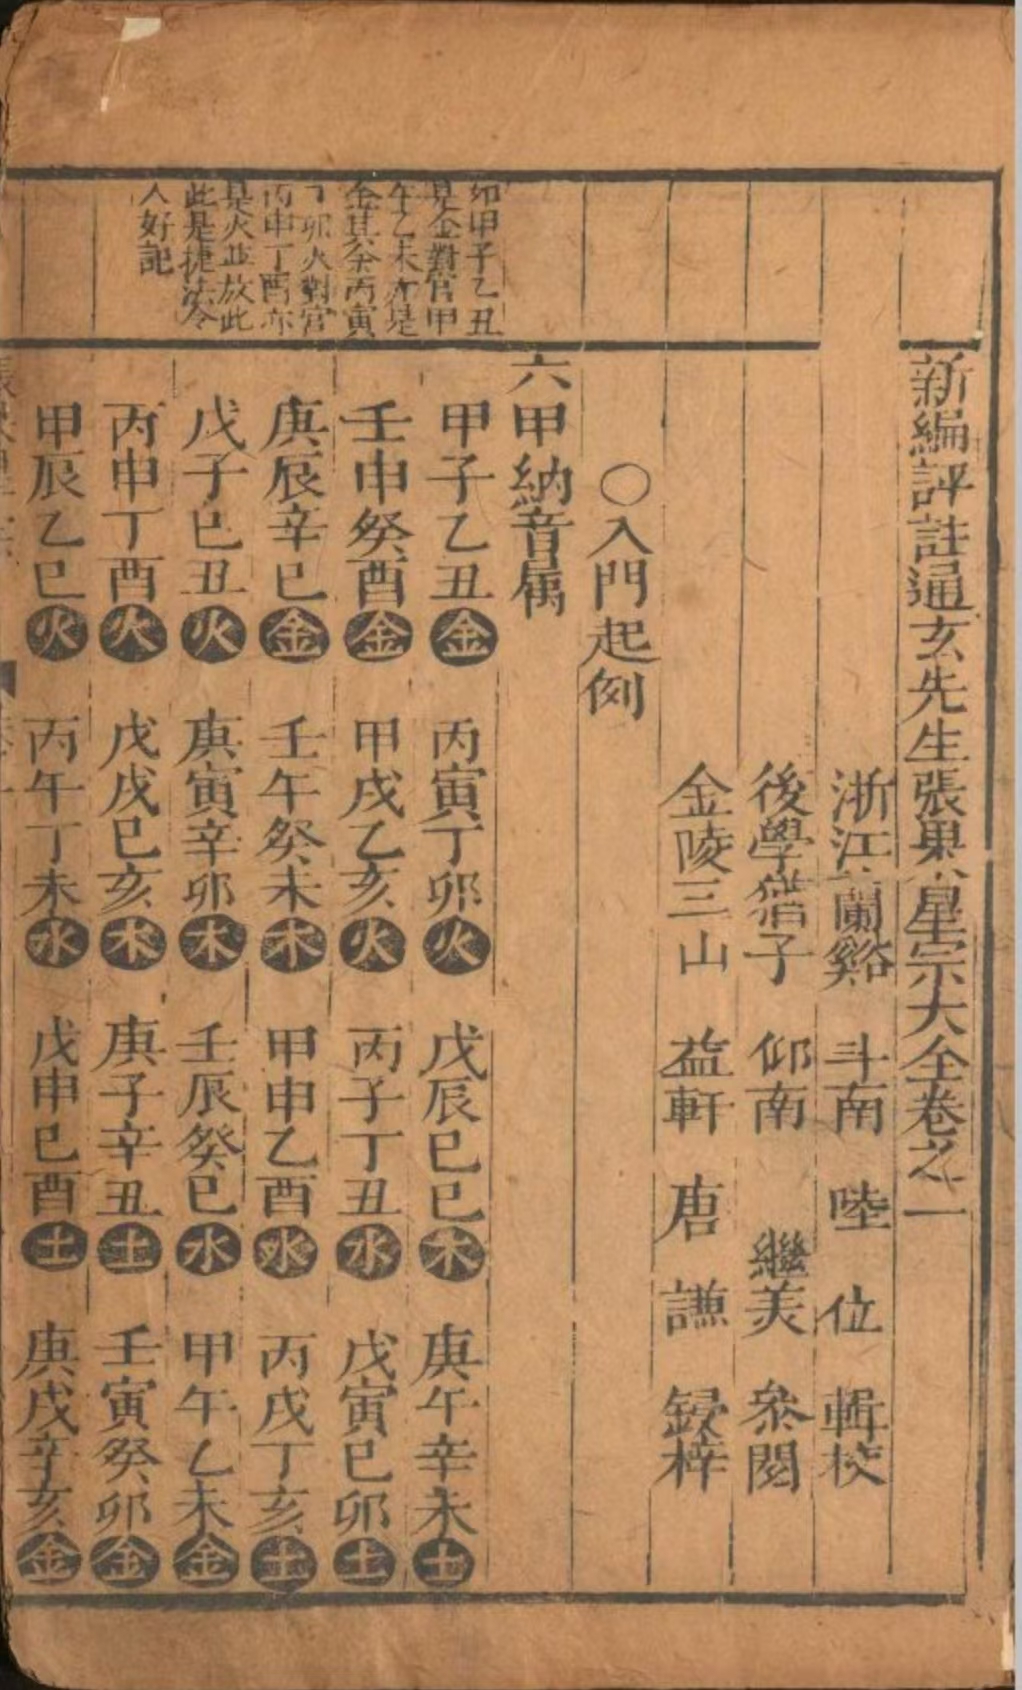 新編評註通玄先生張果星宗大全卷之一
浙江蘭谿 斗南 陸 位 輯校
後學猶子 仰南 繼美 參閱
金陵三山 益軒 唐 謙 鋟梓
○入門起例
六甲納音属
如甲子乙丑
是金對宮甲
午乙未亦是
金其余丙寅
丁卯火對宮
丙申丁酉亦
是火並放此
此是捷法令
人好記
甲子乙丑金 丙寅丁卯火 戊辰巳巳木 庚午辛未土
壬申癸酉金 甲戌乙亥火 丙子丁丑水 戊寅巳卯土
庚辰辛巳金 壬午癸未木 甲申乙酉水 丙戌丁亥土
戊子巳丑火 庚寅辛卯木 壬辰癸巳水 甲午乙未金
丙申丁酉火 戊戌巳亥木 庚子辛丑土 壬寅癸卯金
甲辰乙巳火 丙午丁未水 戊申巳酉土 庚戌辛亥金